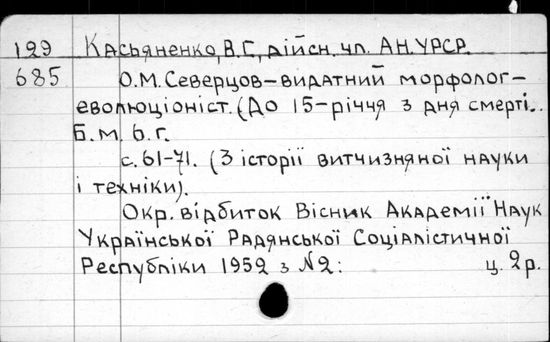 129 Касьяненко, В.Г., дійсн. чл. АН.УРСР.
685 О.М. Северцов–видатний морфолог–
еволюціоніст. (До 15–річчя з дня смерті..
Б. м. б. г.
с. 61–71. (З історії витчизняної науки
і техніки).
Окр. відбиток Вісник Академії Наук
Української Радянської Соціалістичної
Республіки 1952 з №2: ц. 2р.